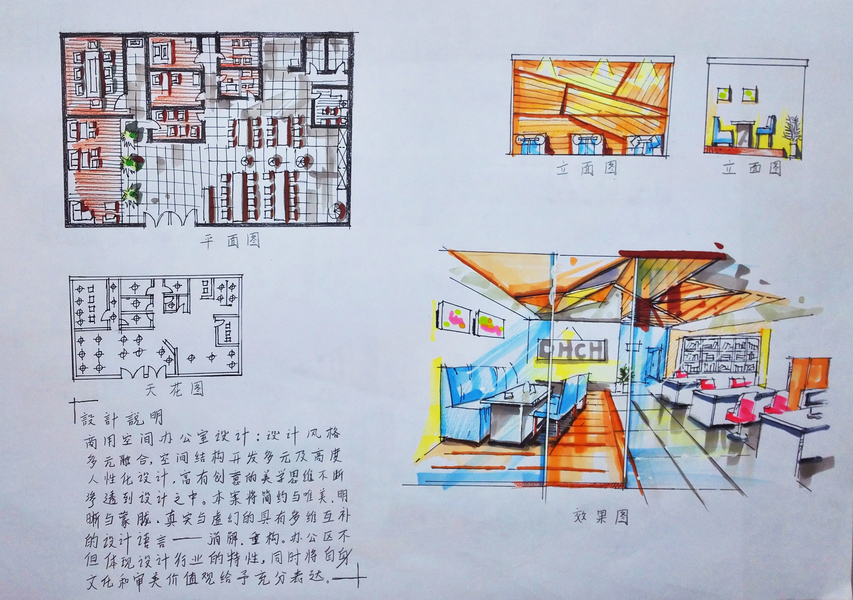 平面图
立面图
立面图
天花图
CHCH
效果图
設計説明
商用空间办公室设计：设计风格
多元融合，空间结构开发多元及高度
人性化设计，富有创意的美学思维不断
渗透到设计之中。本案将简约与唯美，明
晰与蒙胧，真实与虚幻的具有多维互补
的设计语言——消解、重构。办公区不
但体现设计行业的特性，同时将自身
文化和审美价值观给予充分表达。